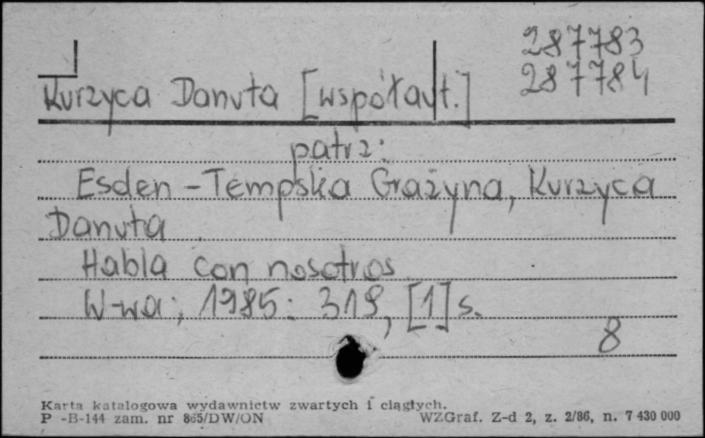 287783
287784
Kurzyca Danuta [współaut.]
patrz:
Esden-Tempska Grażyna, Kurzyca
Danuta
Habla con nosotros
W-wa:, 1985: 319, [1] s.
8
Karta katalogowa wydawnictw zwartych i ciągłych.
P -B-144 zam. nr 865/DW/ON WZGraf. Z-d 2, z. 2/86, n. 7 430 000